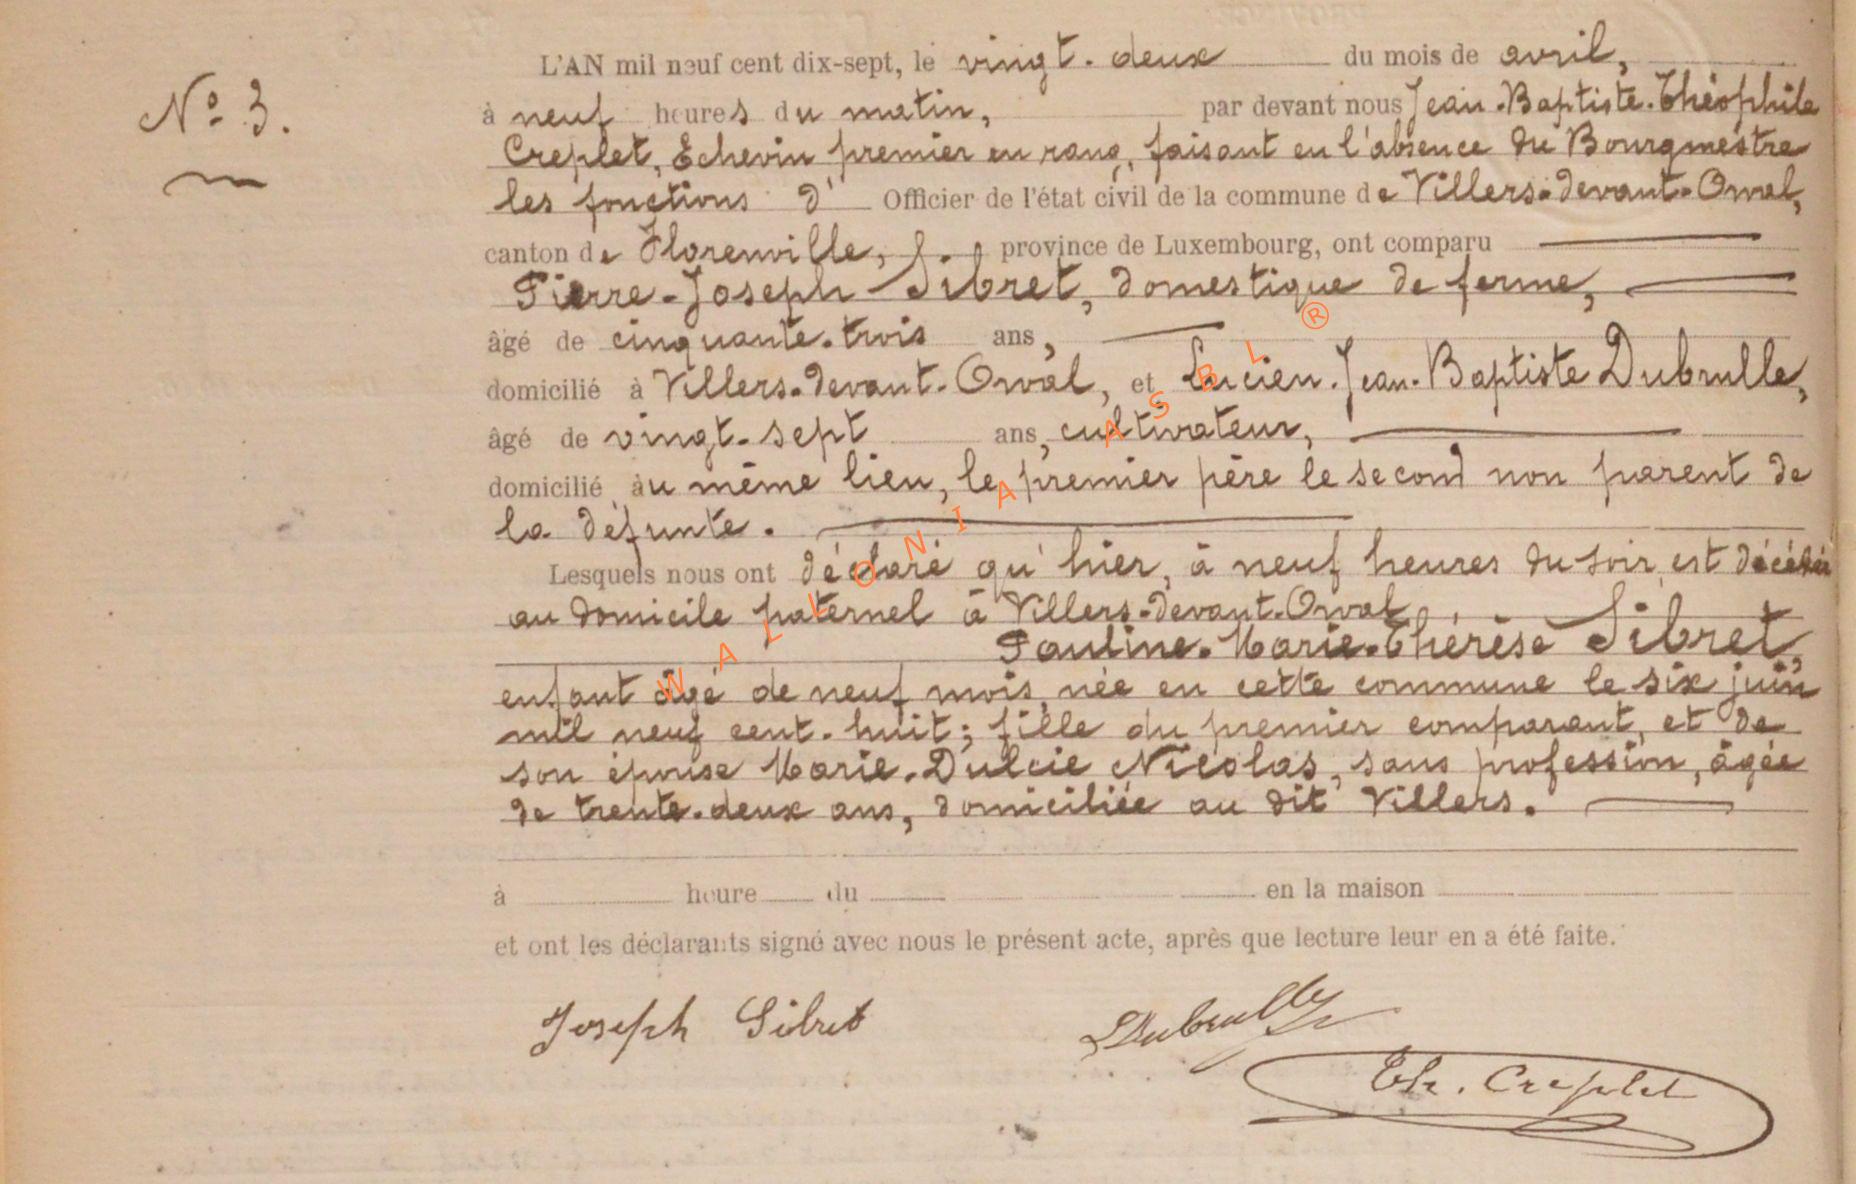 L'AN mil neuf cent dix-sept, le vingt-deux du mois de avril,
N° 3.
à neuf heures du matin, par devant nous Jean-Baptiste-Théophile
Creplet, Echevin premier en rang, faisant en l'absence du Bourgmestre
les fonctions d' Officier de l'état civil de la commune de Villers-devant-Orval,
canton de Florenville, province de Luxembourg, ont comparu
Pierre-Joseph Sibret, domestique de ferme,
âgé de cinquante-trois ans,
domicilié à Villers-devant-Orval, et Lucien-Jean-Baptiste Dubrulle,
âgé de vingt-sept ans, cultivateur,
domicilié au même lieu, le premier père le second non parent de
la défunte.
Lesquels nous ont déclaré qu'hier, à neuf heures du soir, est décédée
au domicile paternel à Villers-devant-Orval
Pauline-Marie-Thérèse Sibret,
enfant âgé de neuf mois, née en cette commune le six juin
mil neuf cent-huit; fille du premier comparant, et de
son épouse Marie-Dulcie Nicolas, sans profession, âgée
de trente-deux ans, domiciliée au dit Villers.
à heure du en la maison
et ont les déclarants signé avec nous le présent acte, après que lecture leur en a été faite.
Joseph Sibret LDubrulle
Th. Creplet
WALLONIA ASBL ®